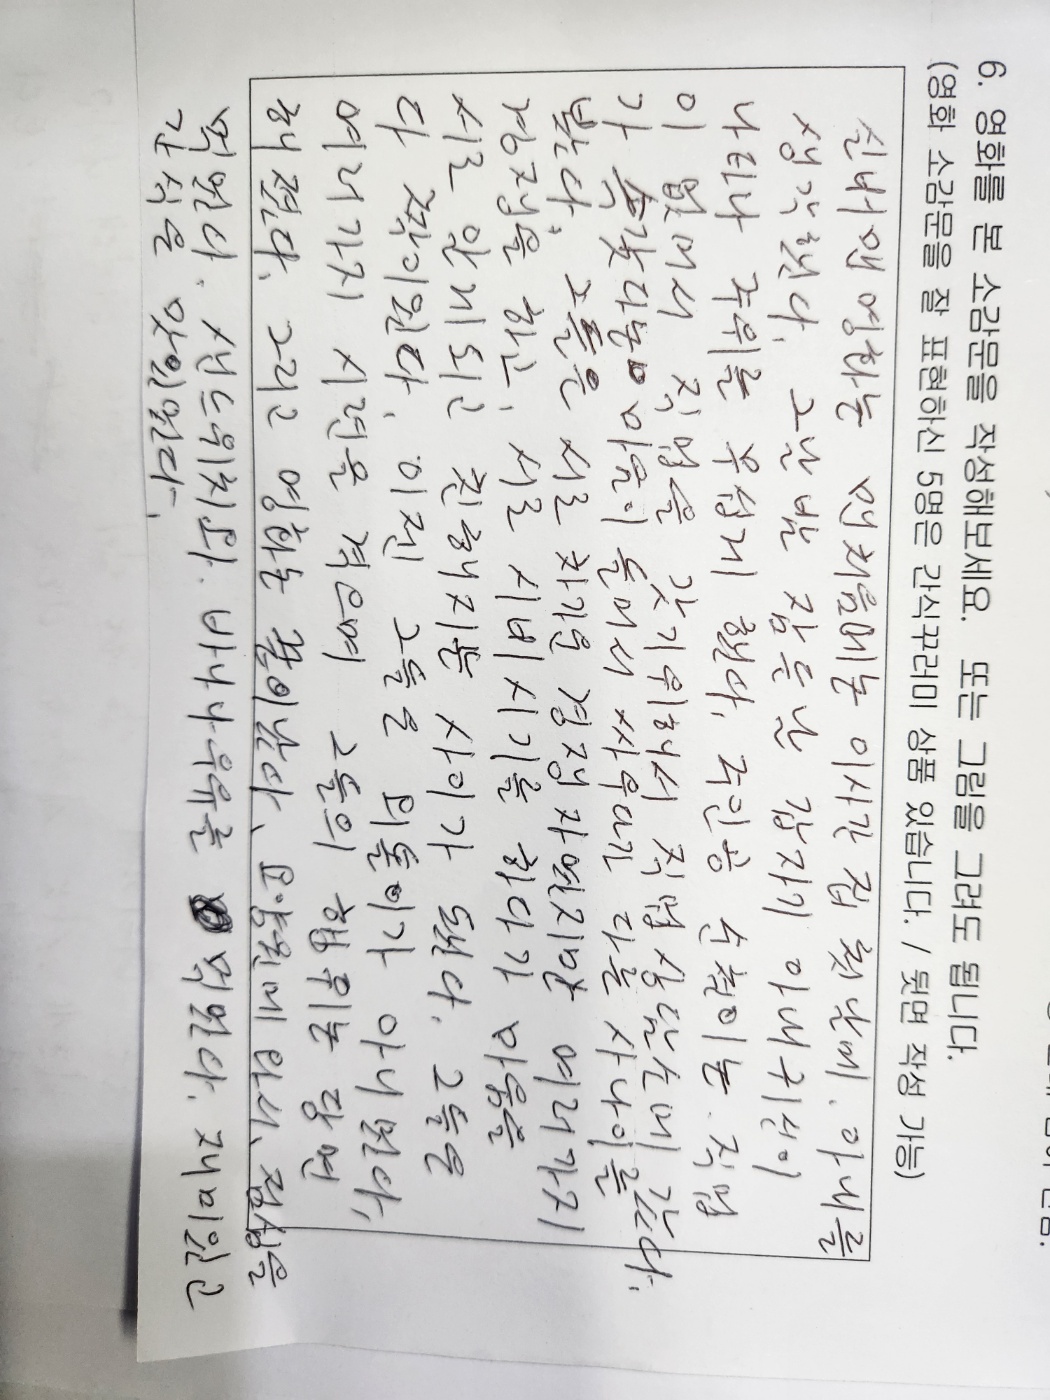 6. 영화를 본 소감문을 작성해보세요. 또는 그림을 그려도 됩니다.
(영화 소감문을 잘 표현하신 5명은 간식꾸러미 상품 있습니다. / 뒷면 작성 가능)
신비앤 영화는 맨처음에는 이사간 집 화난에. 아내를
생각했다. 그날 밤 잠든난 갑자기 아내귀신이
나타나 주위를 무섭게 했다. 주인공 순철이는. 직업
이 없어서 직업을 갖기위해서 직업상담소에 갔다.
가 똑같다는 마음이 들어서 싸우다가 다른 사나이를
봤다. 그들은 서로 차가운 경쟁자였지만 여러가지
경쟁을 하고, 서로 시비시기를 하다가 마음을
서로 알게되고 친해지는 사이가 됐다. 그들은
다 짝이된다. 이젠 그들은 외톨이가 아니였다,
여러가지 시련을 겪으며 그들의 행위는 당연
해졌다. 그리고 영화는 끝이난다. 요양원에 와서. 점심을
먹었다. 샌드위치와. 바나나우유를 먹었다. 재미있고
간식은 맛있었다.